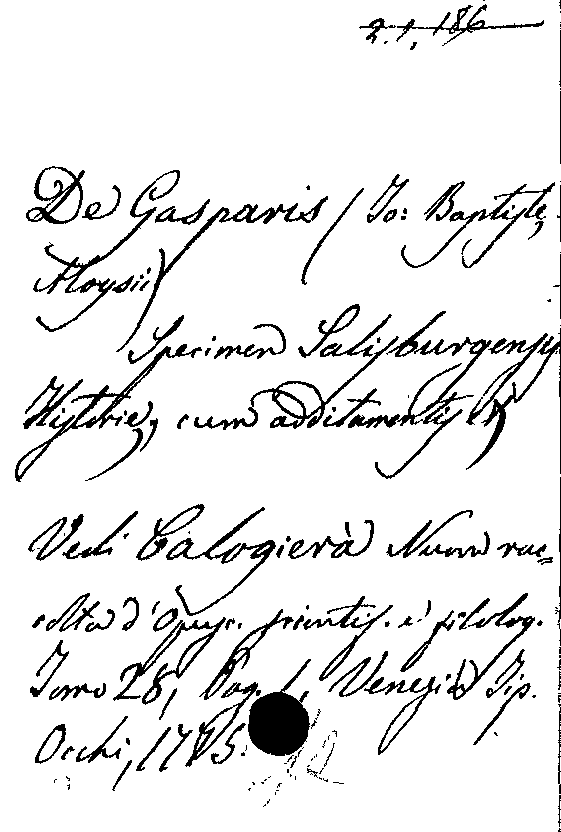 2.1.186
De Gasparis (Jo: Baptistę,
Aloysii)
Specimen Salisburgensis
Historię, cum additamentis
Vedi Calogierà Nuova rac=
colta d'Opusc. scientif. e filolog.
Tomo 28, Pag. 1, Venezia Tip.
Occhi, 1775.